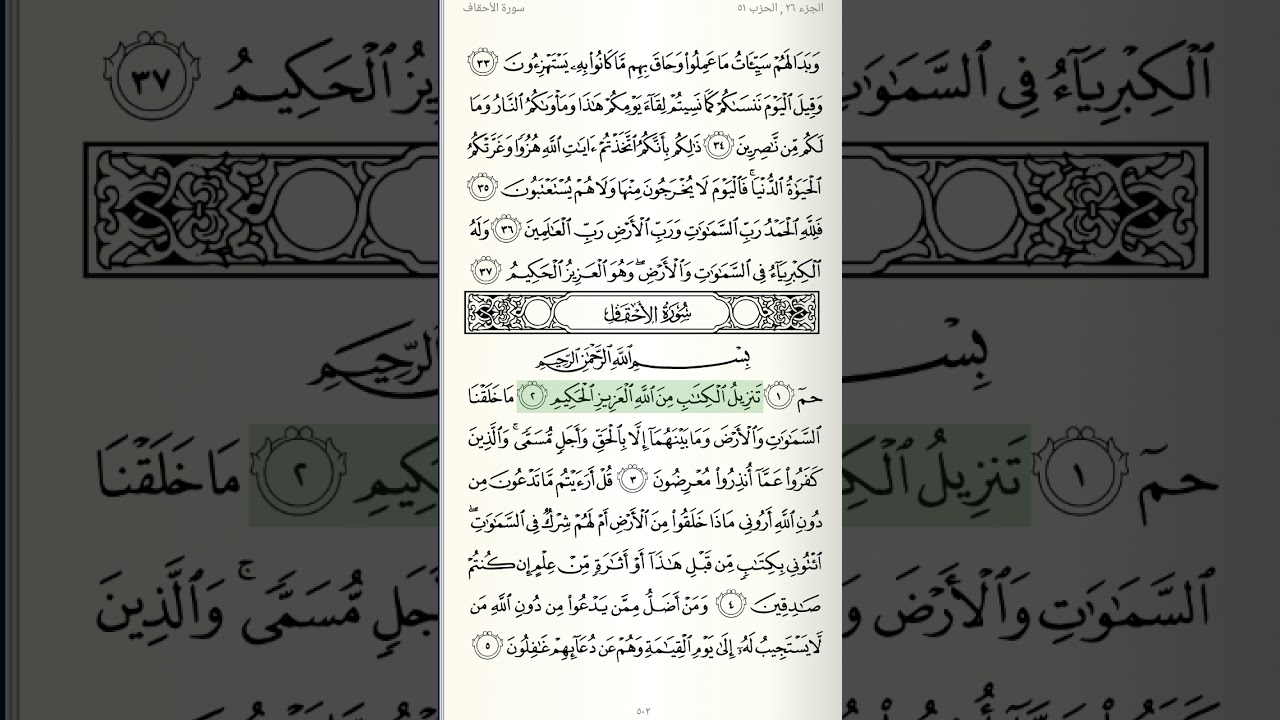 الجزء ٢٦ , الحزب ٥١
سورة الأحقاف
وَبَدَا لَهُمْ سَيِّـَٔاتُ مَا عَمِلُوا۟ وَحَاقَ بِهِم مَّا كَانُوا۟ بِهِۦ يَسْتَهْزِءُونَ ٣٣
وَقِيلَ ٱلْيَوْمَ نَنسَىٰكُمْ كَمَا نَسِيتُمْ لِقَآءَ يَوْمِكُمْ هَـٰذَا وَمَأْوَىٰكُمُ ٱلنَّارُ وَمَا
لَكُم مِّن نَّـٰصِرِينَ ٣٤ ذَٰلِكُم بِأَنَّكُمُ ٱتَّخَذْتُمْ ءَايَـٰتِ ٱللَّهِ هُزُوًا وَغَرَّتْكُمُ
ٱلْحَيَوٰةُ ٱلدُّنْيَا ۚ فَٱلْيَوْمَ لَا يُخْرَجُونَ مِنْهَا وَلَا هُمْ يُسْتَعْتَبُونَ ٣٥
فَلِلَّهِ ٱلْحَمْدُ رَبِّ ٱلسَّمَـٰوَٰتِ وَرَبِّ ٱلْأَرْضِ رَبِّ ٱلْعَـٰلَمِينَ ٣٦ وَلَهُ
ٱلْكِبْرِيَآءُ فِى ٱلسَّمَـٰوَٰتِ وَٱلْأَرْضِ ۖ وَهُوَ ٱلْعَزِيزُ ٱلْحَكِيمُ ٣٧
سُورَةُ الأَحْقَافِ
بِسْمِ ٱللَّهِ ٱلرَّحْمَـٰنِ ٱلرَّحِيمِ
حمٓ ١ تَنزِيلُ ٱلْكِتَـٰبِ مِنَ ٱللَّهِ ٱلْعَزِيزِ ٱلْحَكِيمِ ٢ مَا خَلَقْنَا
ٱلسَّمَـٰوَٰتِ وَٱلْأَرْضَ وَمَا بَيْنَهُمَآ إِلَّا بِٱلْحَقِّ وَأَجَلٍ مُّسَمًّى ۚ وَٱلَّذِينَ
كَفَرُوا۟ عَمَّآ أُنذِرُوا۟ مُعْرِضُونَ ٣ قُلْ أَرَءَيْتُم مَّا تَدْعُونَ مِن
دُونِ ٱللَّهِ أَرُونِى مَاذَا خَلَقُوا۟ مِنَ ٱلْأَرْضِ أَمْ لَهُمْ شِرْكٌ فِى ٱلسَّمَـٰوَٰتِ ۖ
ٱئْتُونِى بِكِتَـٰبٍ مِّن قَبْلِ هَـٰذَآ أَوْ أَثَـٰرَةٍ مِّنْ عِلْمٍ إِن كُنتُمْ
صَـٰدِقِينَ ٤ وَمَنْ أَضَلُّ مِمَّن يَدْعُوا۟ مِن دُونِ ٱللَّهِ مَن
لَّا يَسْتَجِيبُ لَهُۥٓ إِلَىٰ يَوْمِ ٱلْقِيَـٰمَةِ وَهُمْ عَن دُعَآئِهِمْ غَـٰفِلُونَ ٥
٥٠٢